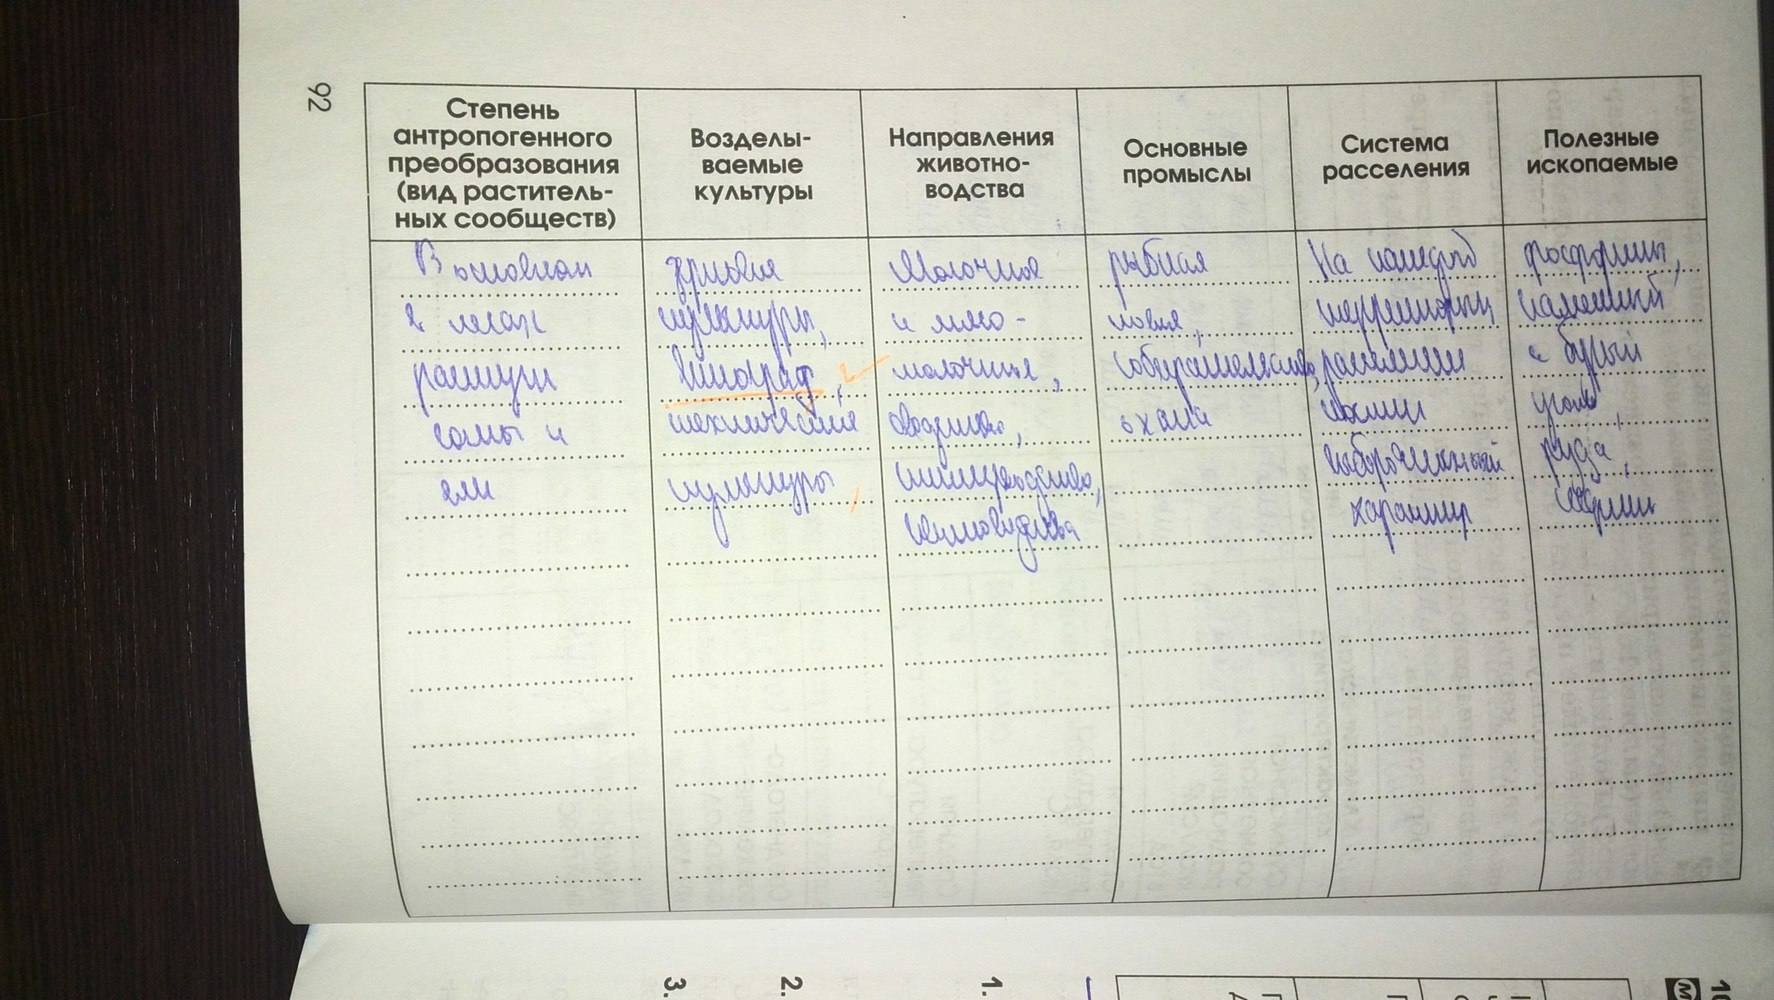 92
Степень
антропогенного
преобразования
(вид раститель-
ных сообществ)
Возделы-
ваемые
культуры
Направления
животно-
водства
Основные
промыслы
Система
расселения
Полезные
ископаемые
В основном
в лесах
растут
сосны и
ели
культуры,
виноград,
технические
культуры
Молочное
и мясо-
молочное,
рыбная
ловля,
собирательство,
охота
На
территории
расселение
характер
фосфориты,
каменный
и бурый
уголь,
руда,
3.
2.
1.